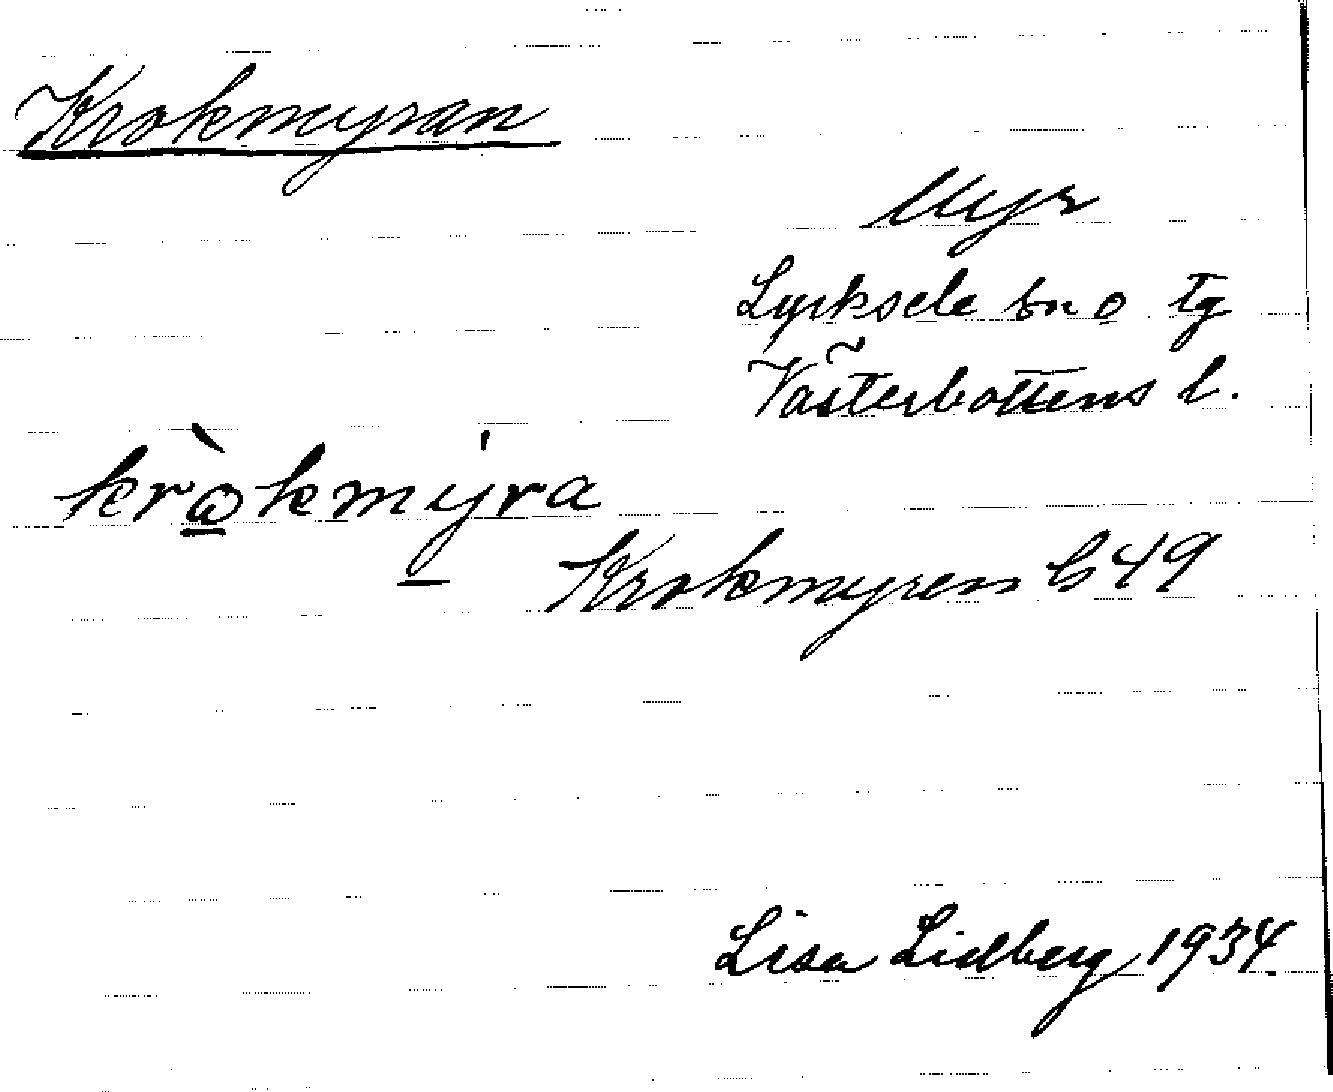 Krokmyran
Myr
Lycksele sn o tg
Västerbottens l.
kròkmýra
Krokmyren b 49
Lisa Lidberg 1934.